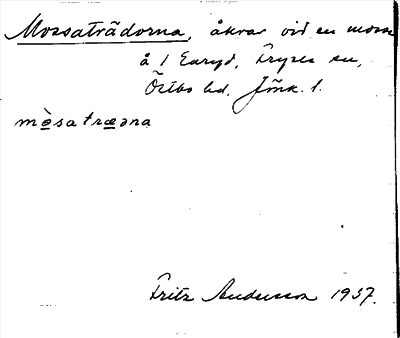 Mossaträdorna, åkrar vid en mosse
å 1 Earyd, Tryses sn,
Östbo hd. Jönk. l.
mòsatræəna
Fritz Andersson 1937.